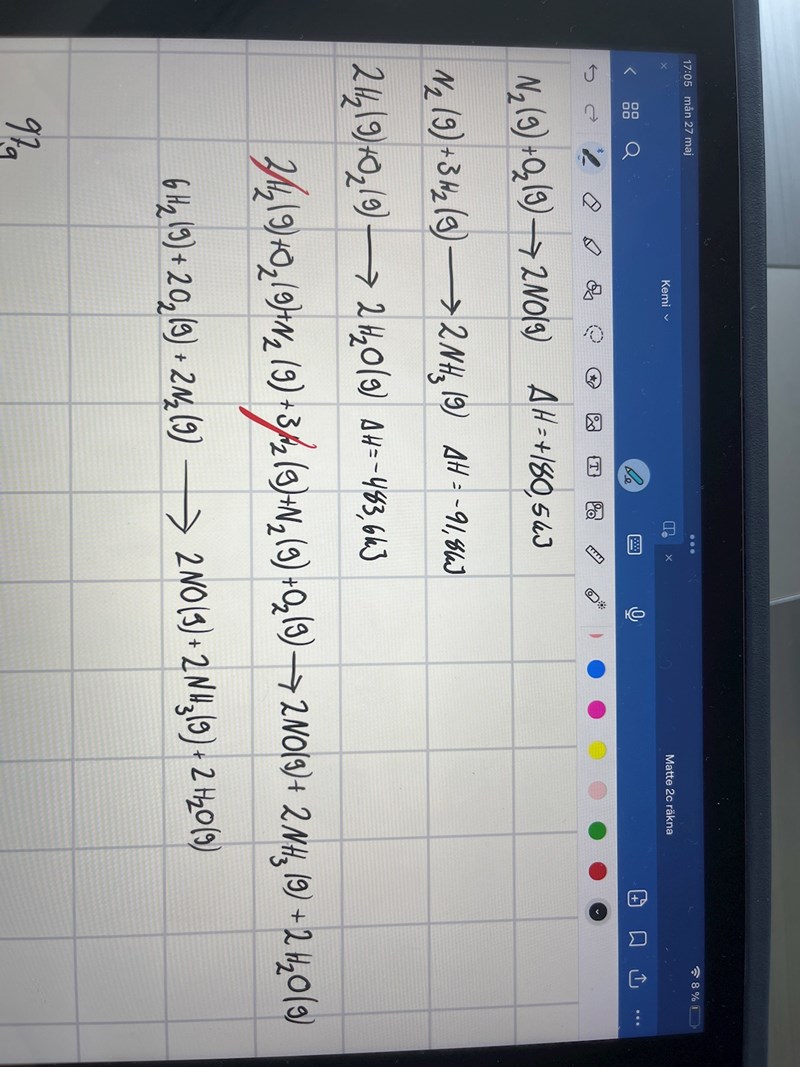 17:05 mån 27 maj
8 %
Kemi
Matte 2c räkna
N₂(g)+O₂(g)→2NO(g) ΔH=+180,5kJ
N₂(g)+3H₂(g)→2NH₃(g) ΔH=-91,8kJ
2H₂(g)+O₂(g)→2H₂O(g) ΔH=-483,6kJ
2H₂(g)+O₂(g)+N₂(g)+3H₂(g)+N₂(g)+O₂(g)→2NO(g)+2NH₃(g)+2H₂O(g)
6H₂(g)+2O₂(g)+2N₂(g)→2NO(g)+2NH₃(g)+2H₂O(g)